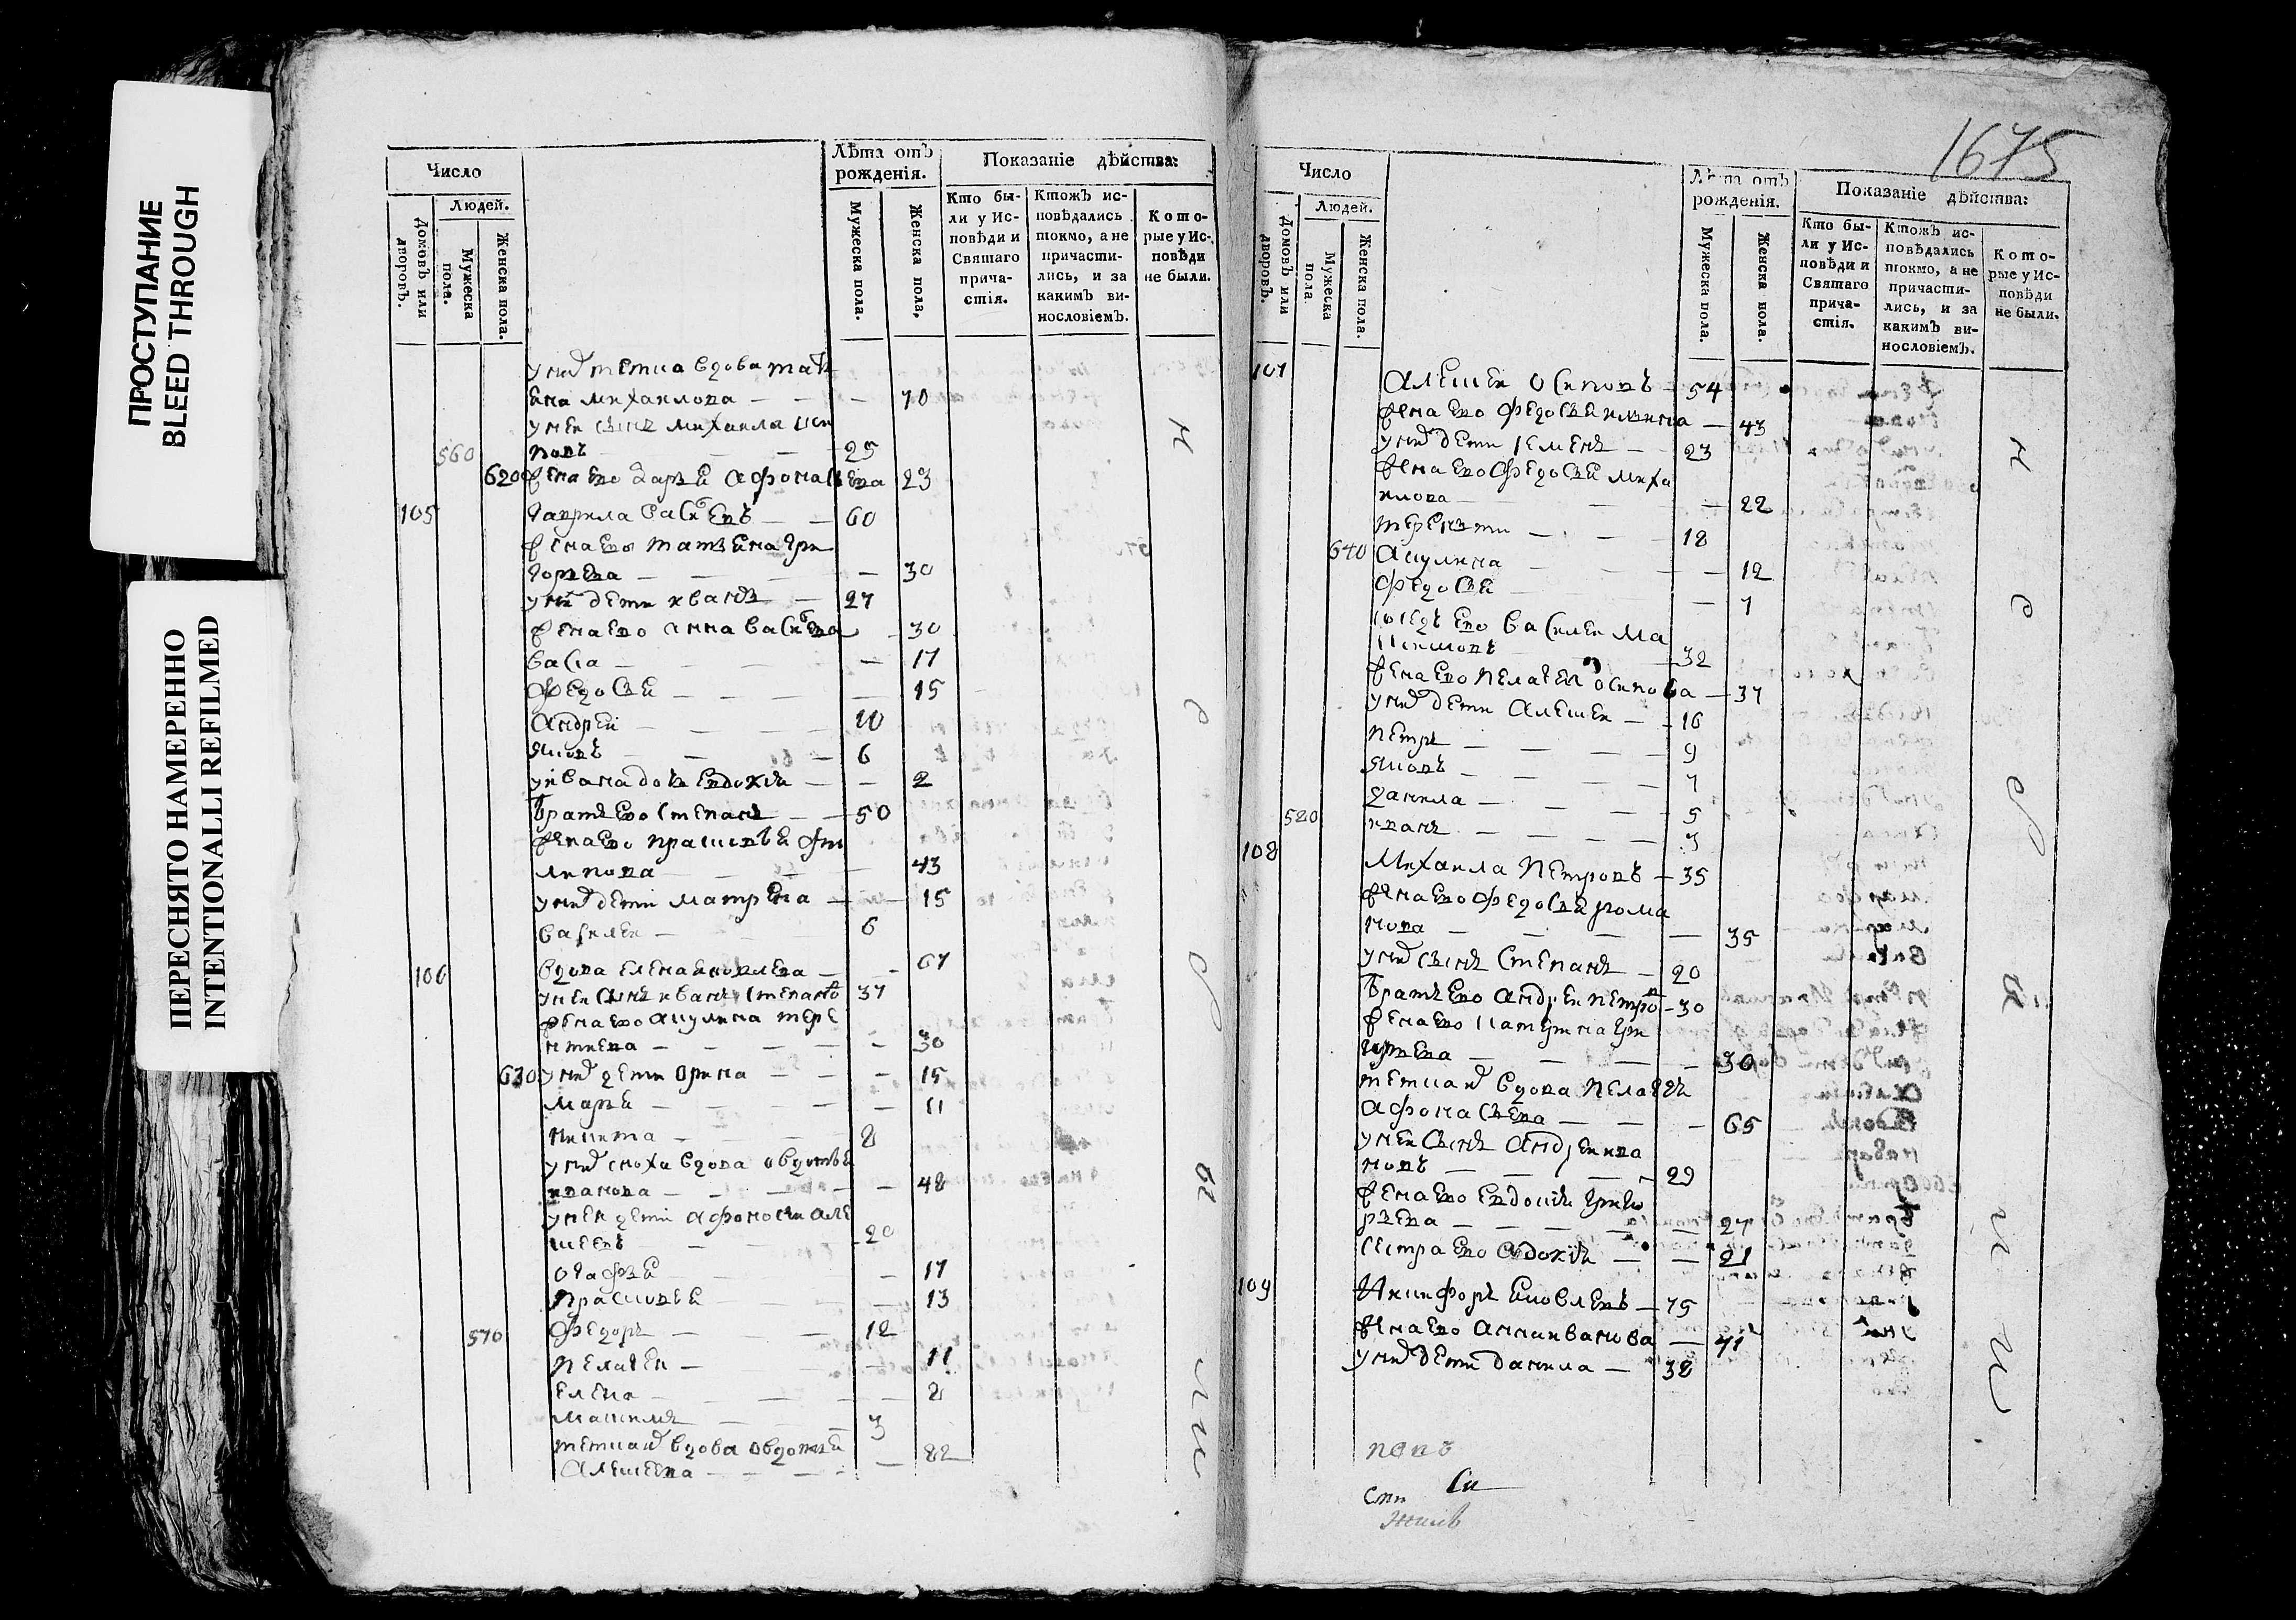 ПРОСТУПАНИЕ
BLEED THROUGH
ПЕРЕСНЯТО НАМЕРЕННО
INTENTIONALLI REFILMED
Число
Людей.
Домовъ или дворовъ.
Мужеска пола.
Женска пола.
Лѣта отъ рожденія.
Мужеска пола.
Женска пола,
Показаніе дѣйства:
Кто бы-
ли у Ис-
повѣди и
Святаго
прича-
стія.
Ктожъ ис-
повѣдались
токмо, а не
причасти-
лись, и за
какимъ ви-
нословіемъ.
Кото-
рые у Ис-
повѣди
не были.
у нив тетка вдова тать
яна михаилова — 70
у неи сынъ михаила
560 повъ 25
620 жена ево дарья афонасьева 23
105 Гаврила васильевъ — 60
жена ево татьяна гри
горьева — 30
у них дети иванъ — 27
жена ево анна васильева 30
васа — 17
федосья — 15
андреи — 10
яковъ — 6
у ивана дочь евдокия — 2
братъ ево степанъ — 50
жена ево прасковья фи
липова — 43
у них дети матрена — 15
василеи — 6
106 вдова елена яковлева — 67
у неи сынъ иванъ степановъ 37
жена ево акулина тере
нтиева — 30
630 у них дети орина — 15
марья — 11
никита — 8
у них сноха вдова овдотья
иванова — 48
у неи дети афонасеи але
ксеевъ — 20
огафья — 17
прасковья — 13
570 федоръ — 12
пелагея — 11
елена — 2
максимъ — 3
тетка их вдова овдотья
алексеева — 82
н е б ы л и
1675
Число
Людей.
Домовъ или дворовъ.
Мужеска пола
Женска пола.
Лѣта отъ рожденія.
Мужеска пола.
Женска пола.
Показаніе дѣйства:
Кто бы-
ли у Ис-
повѣди и
Святаго
прича-
стія.
Ктожъ ис-
повѣдались
токмо, а не
причасти-
лись, и за
какимъ ви-
нословіемъ.
Кото-
рые у Ис-
повѣди
не были.
107 Алексеи осиповъ — 54
жена ево федосья ильина — 43
у них дети семенъ — 23
жена ево федосья миха
илова — 22
терентии — 18
640 акулина — 12
федосья — 7
соседъ ево василеи ма
ксимовъ — 32
жена ево пелагея осипова — 37
у них дети алексеи — 16
петръ — 9
яковъ — 7
данила — 5
580 иванъ — 3
108 Михаила петровъ — 35
жена ево федосья рома
нова — 35
у них сынъ степанъ — 20
братъ ево андреи петровъ — 30
жена ево катерина гри
горьева — 30
тетка их вдова пелагея
афонасьева — 65
у неи сынъ андреи ива
новъ — 29
жена ево евдокия григо
рьева — 27
сестра ево авдокия — 21
109 Никифоръ яковлевъ — 75
жена ево анна иванова — 71
у них дети данила — 38
н е б ы л и
попъ